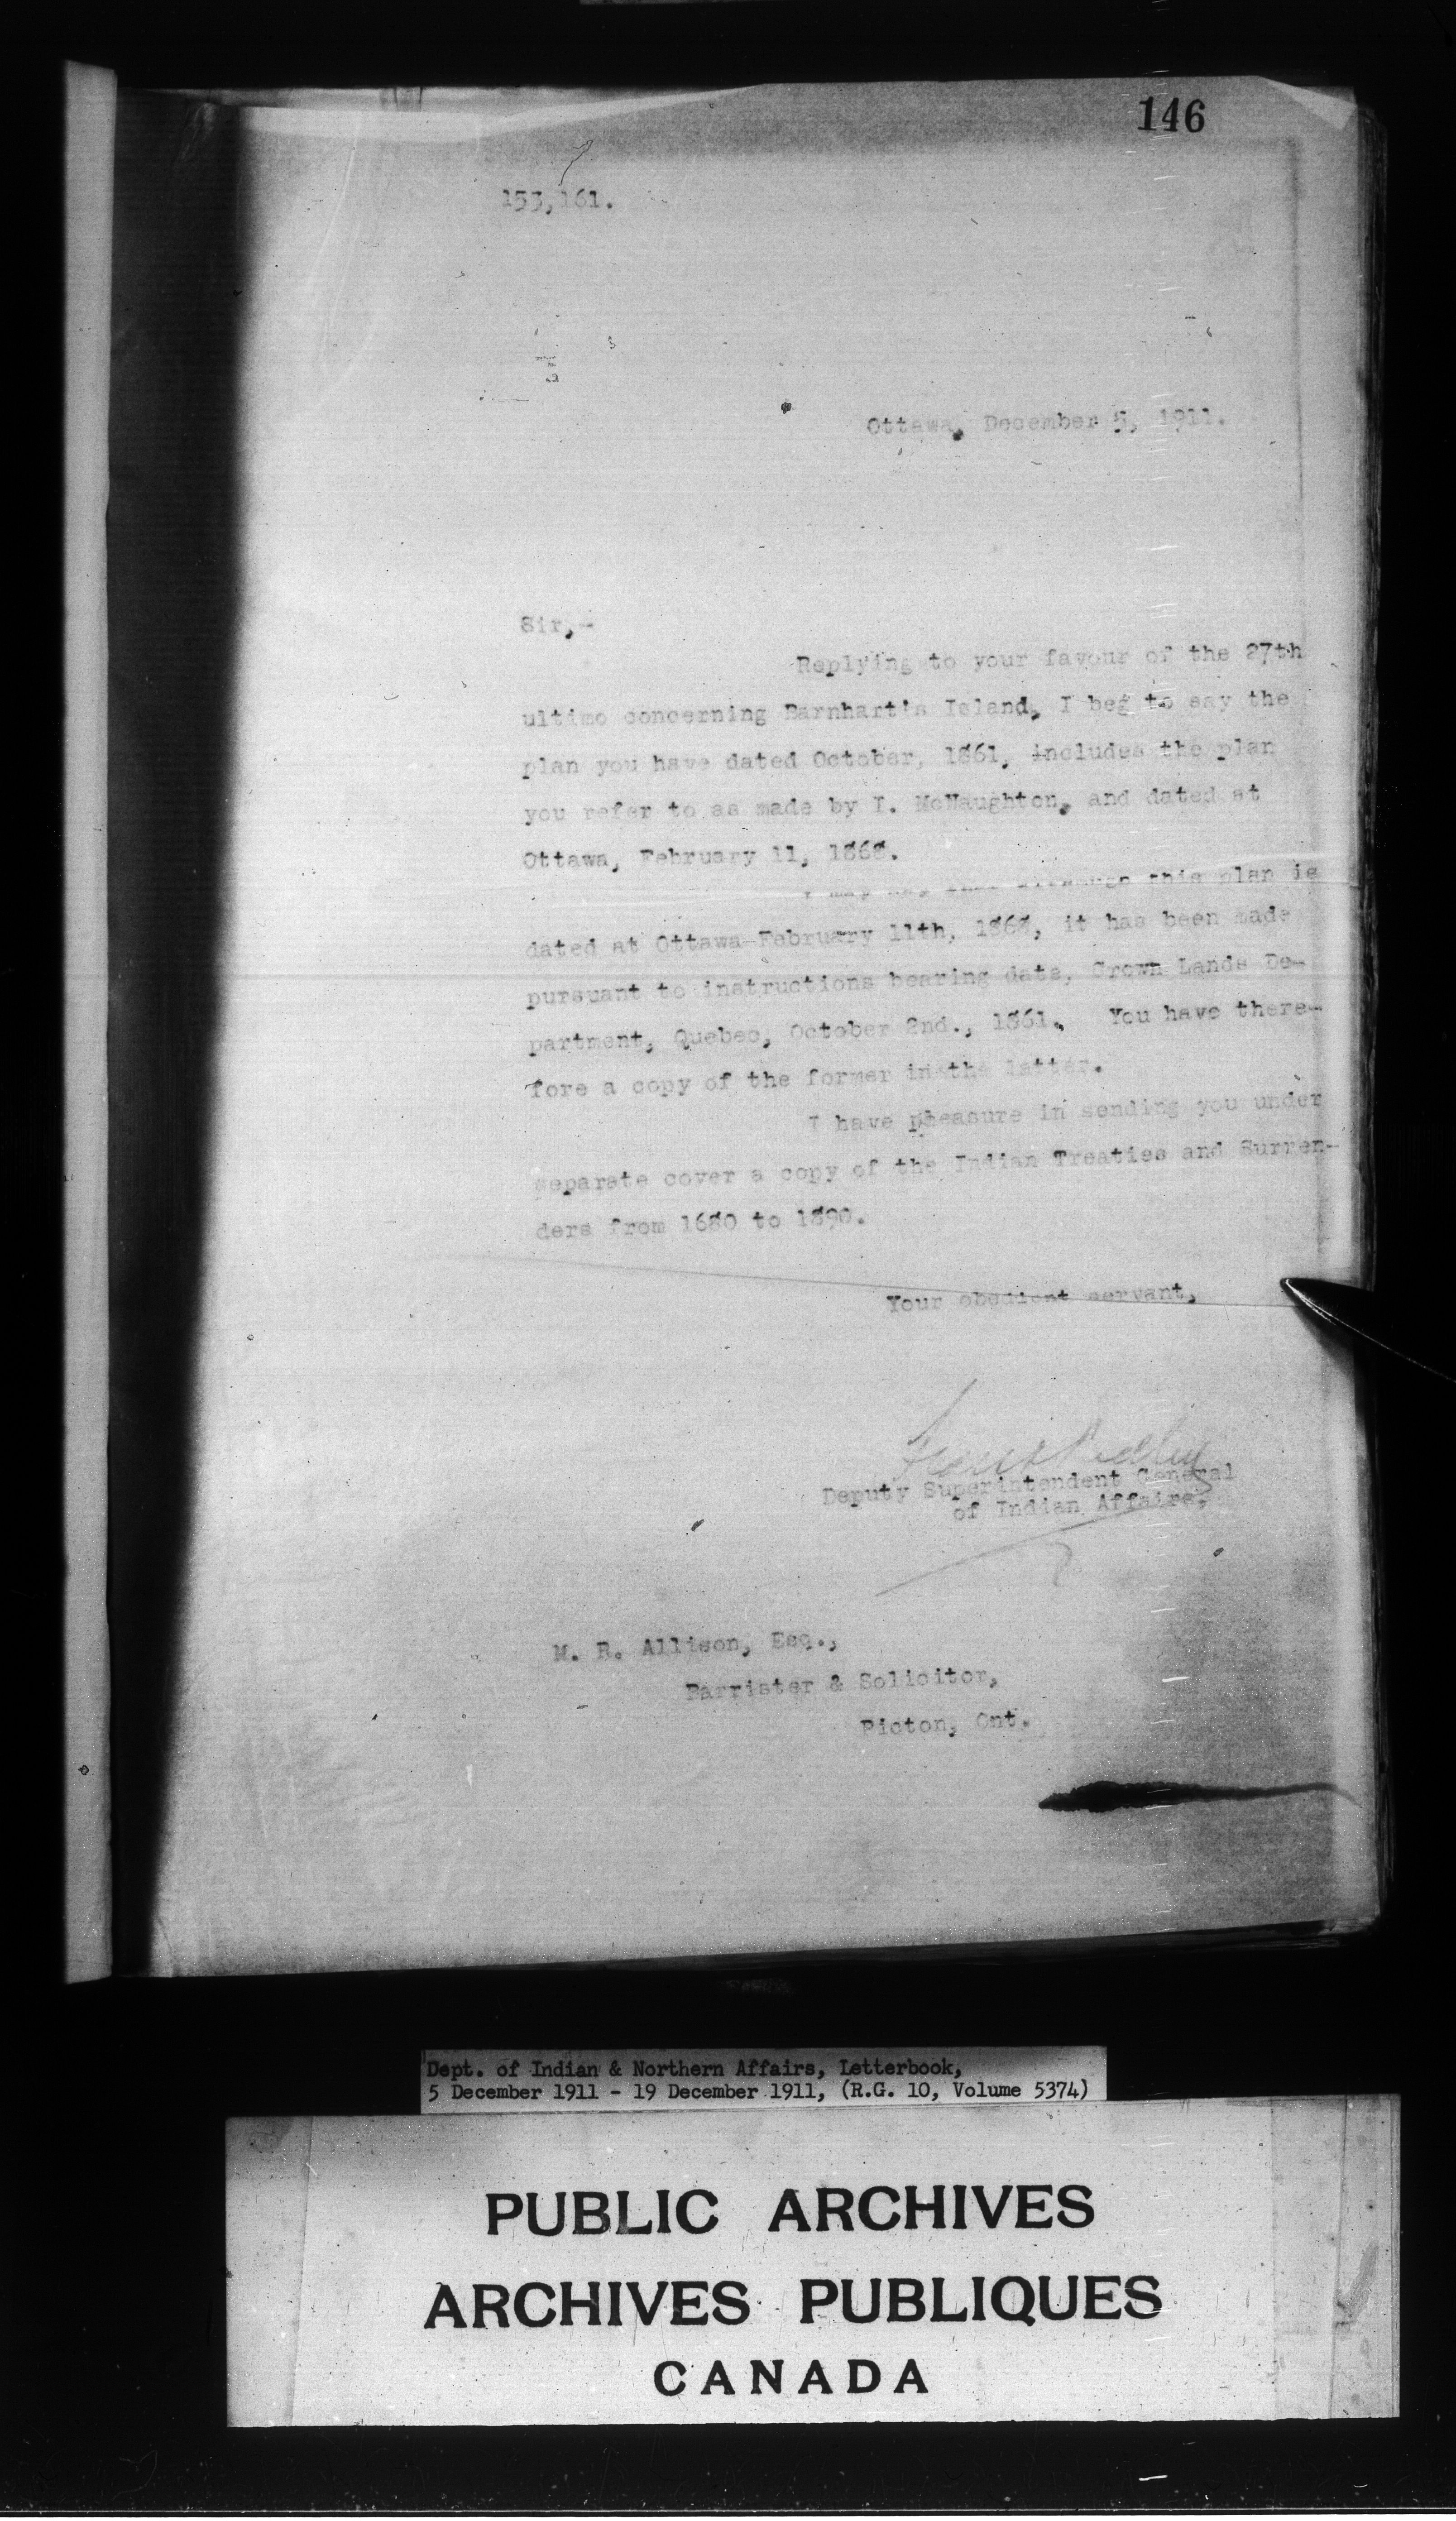 146
153,161.
Ottawa, December 5, 1911.
Sir,-
Replying to your favour of the 27th
ultimo concerning Barnhart's Island, I beg to say the
plan you have dated October, 1861, includes the plan
you refer to as made by I. McNaughton, and dated at
Ottawa, February 11, 1868.
I may say that although this plan is
dated at Ottawa February 11th, 1868, it has been made
pursuant to instructions bearing date, Crown Lands De-
partment, Quebec, October 2nd., 1861. You have there-
fore a copy of the former in the latter.
I have pleasure in sending you under
separate cover a copy of the Indian Treaties and Surren-
ders from 1680 to 1890.
Your obedient servant,
Frank Pedley
Deputy Superintendent General
of Indian Affairs.
M. R. Allison, Esq.,
Barrister & Solicitor,
Picton, Ont.
Dept. of Indian & Northern Affairs, Letterbook,
5 December 1911 - 19 December 1911, (R.G. 10, Volume 5374)
PUBLIC ARCHIVES
ARCHIVES PUBLIQUES
CANADA